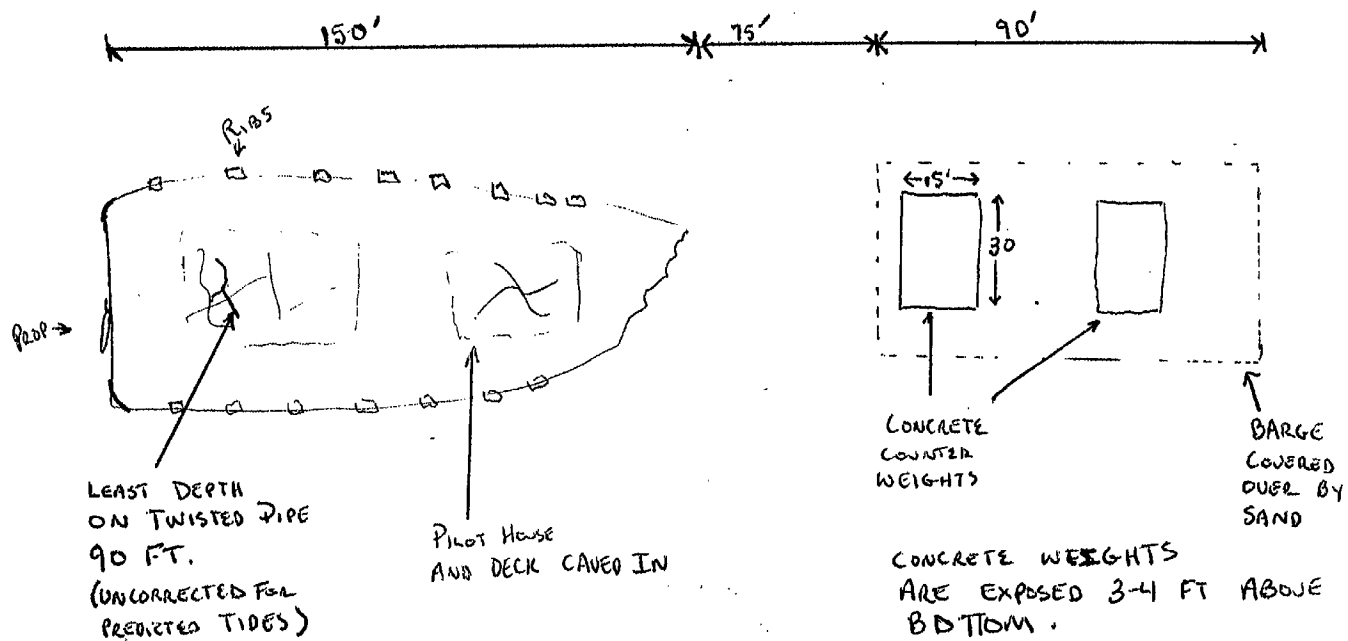 150'
75'
90'
RIBS
PROP →
←15'→
30
LEAST DEPTH
ON TWISTED PIPE
90 FT.
(UNCORRECTED FOR
PREDICTED TIDES)
PILOT HOUSE
AND DECK CAVED IN
CONCRETE
COUNTER
WEIGHTS
BARGE
COVERED
OVER BY
SAND
CONCRETE WEIGHTS
ARE EXPOSED 3-4 FT ABOVE
BOTTOM.